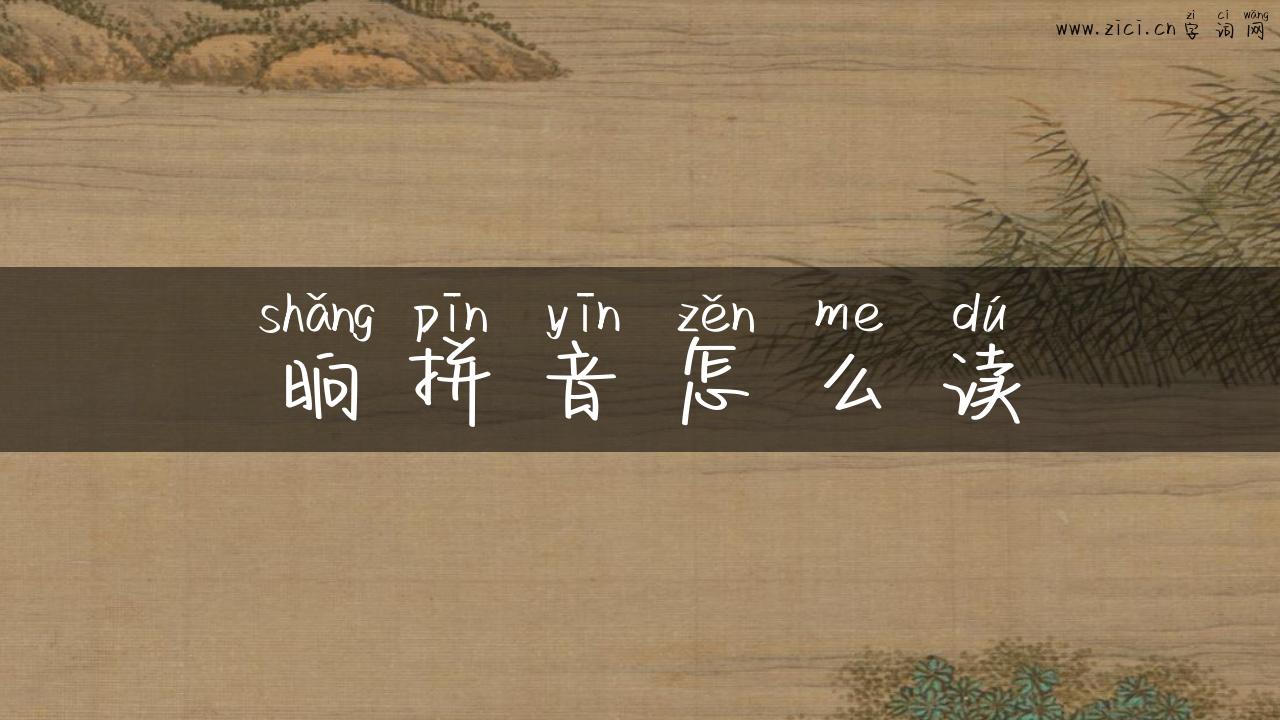 www.zici.cn
zì cí wǎng
字词网
shǎng pīn yīn zěn me dú
晌拼音怎么读